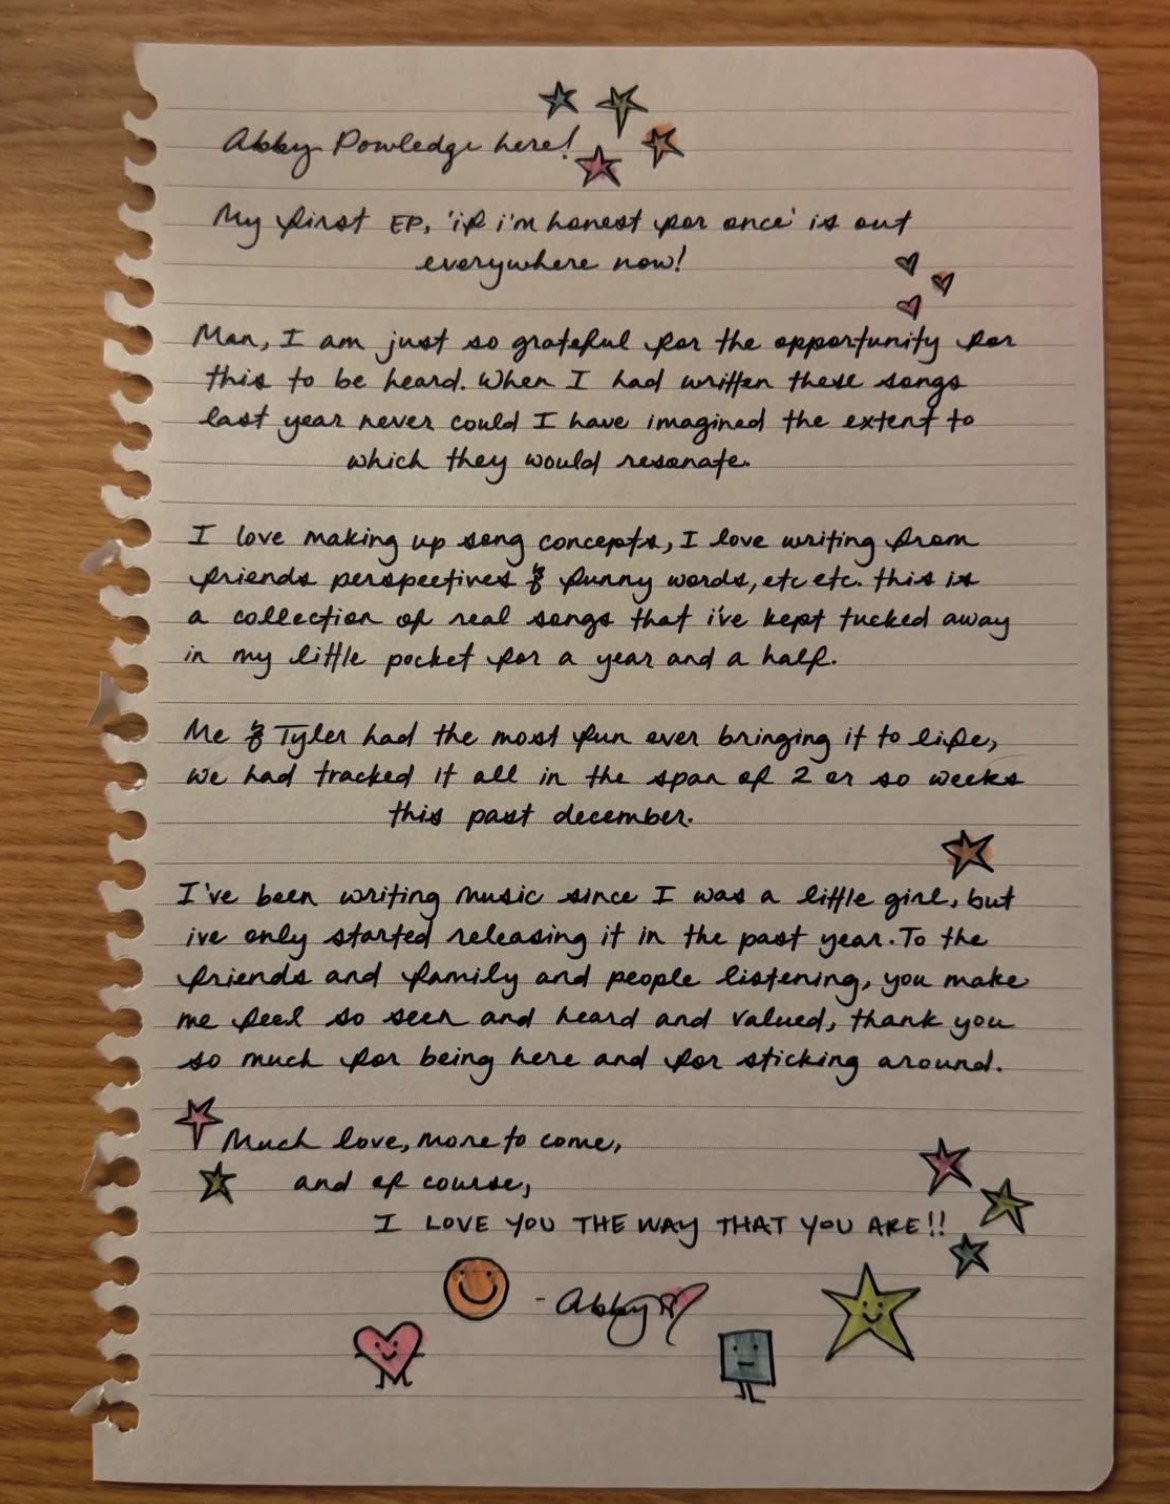 Abby Powledge here!
My first EP, 'if i'm honest for once' is out
everywhere now!
Man, I am just so grateful for the opportunity for
this to be heard. When I had written these songs
last year never could I have imagined the extent to
which they would resonate.
I love making up song concepts, I love writing from
friends perspectives & funny words, etc etc. this is
a collection of real songs that i've kept tucked away
in my little pocket for a year and a half.
Me & Tyler had the most fun ever bringing it to life,
we had tracked it all in the span of 2 or so weeks
this past december.
I've been writing music since I was a little girl, but
ive only started releasing it in the past year. To the
friends and family and people listening, you make
me feel so seen and heard and valued, thank you
so much for being here and for sticking around.
Much love, more to come,
and of course,
I LOVE YOU THE WAY THAT YOU ARE!!
- Abby